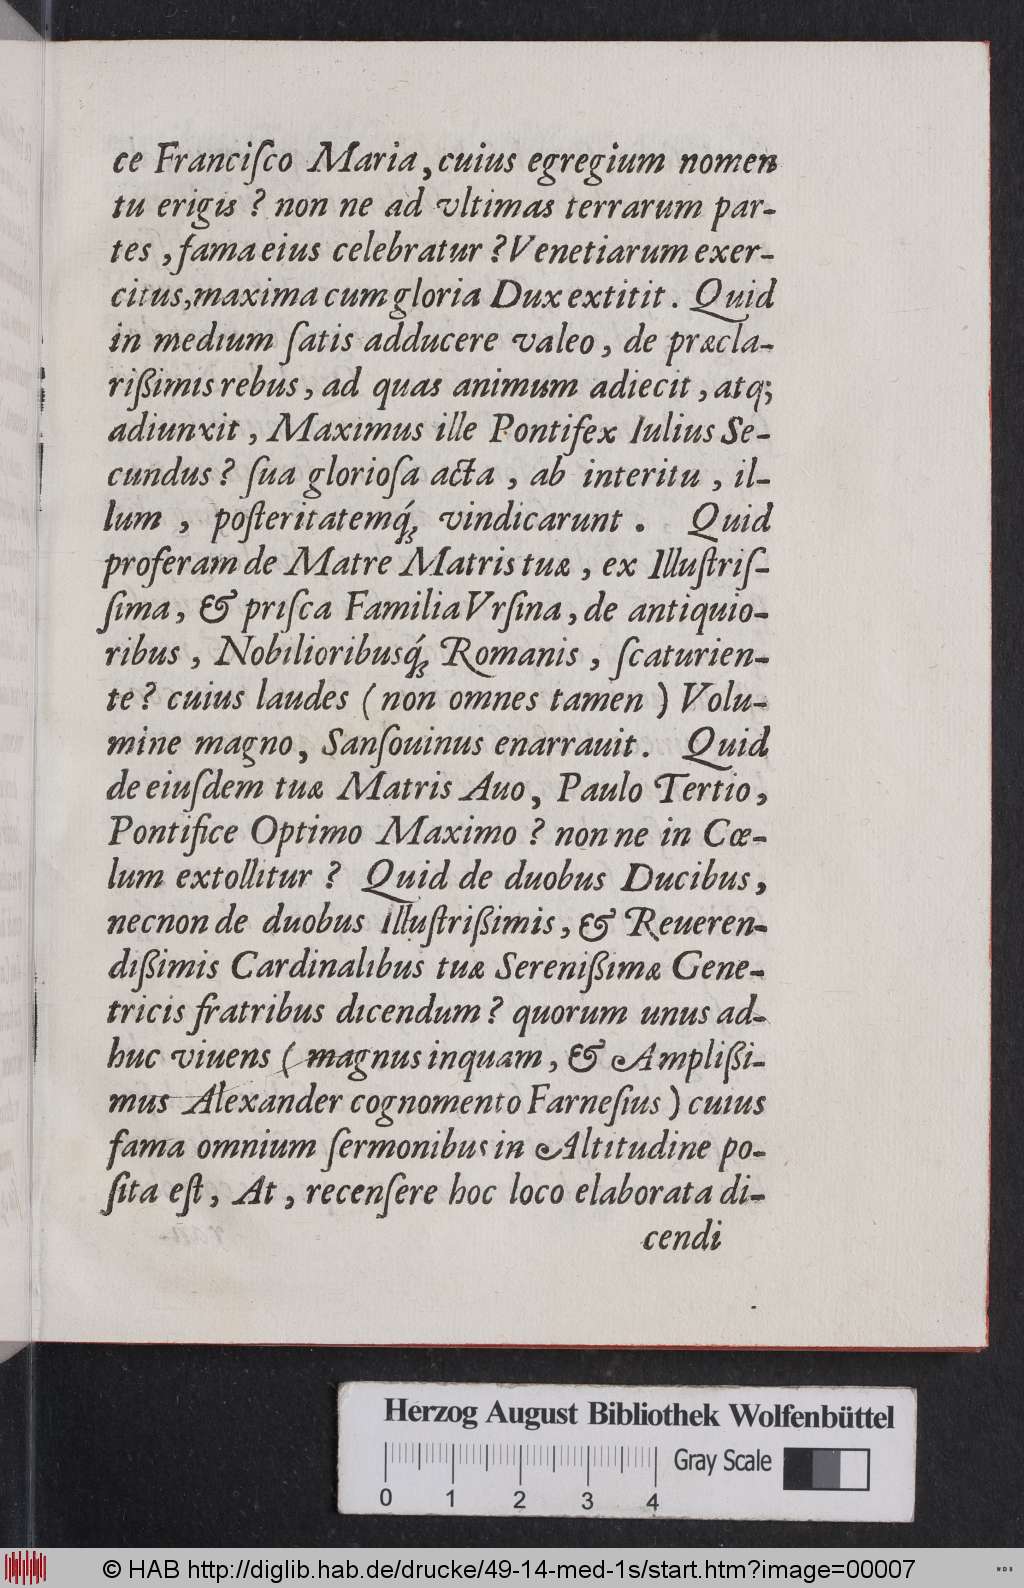 ce Franciſco Maria, cuius egregium nomen
tu erigis ? non ne ad vltimas terrarum par-
tes , fama eius celebratur ? Venetiarum exer-
citus, maxima cum gloria Dux extitit . Quid
in medium ſatis adducere valeo , de præcla-
rißimis rebus , ad quas animum adiecit , atq;
adiunxit , Maximus ille Pontifex Iulius Se-
cundus ? ſua glorioſa acta , ab interitu , il-
lum , poſteritatemq́; vindicarunt . Quid
proferam de Matre Matris tuæ , ex Illuſtriſ-
ſima , & priſca Familia Vrſina , de antiquio-
ribus , Nobilioribusq́; Romanis , ſcaturien-
te ? cuius laudes ( non omnes tamen ) Volu-
mine magno, Sanſouinus enarrauit . Quid
de eiuſdem tuæ Matris Auo, Paulo Tertio,
Pontifice Optimo Maximo ? non ne in Cœ-
lum extollitur ? Quid de duobus Ducibus,
necnon de duobus Illuſtrißimis, & Reueren-
dißimis Cardinalibus tuæ Serenißimæ Gene-
tricis fratribus dicendum ? quorum unus ad-
huc viuens ( magnus inquam , & Amplißi-
mus Alexander cognomento Farneſius ) cuius
fama omnium ſermonibus in Altitudine po-
ſita eſt , At , recenſere hoc loco elaborata di-
cendi
Herzog August Bibliothek Wolfenbüttel
Gray Scale
0 1 2 3 4
© HAB http://diglib.hab.de/drucke/49-14-med-1s/start.htm?image=00007